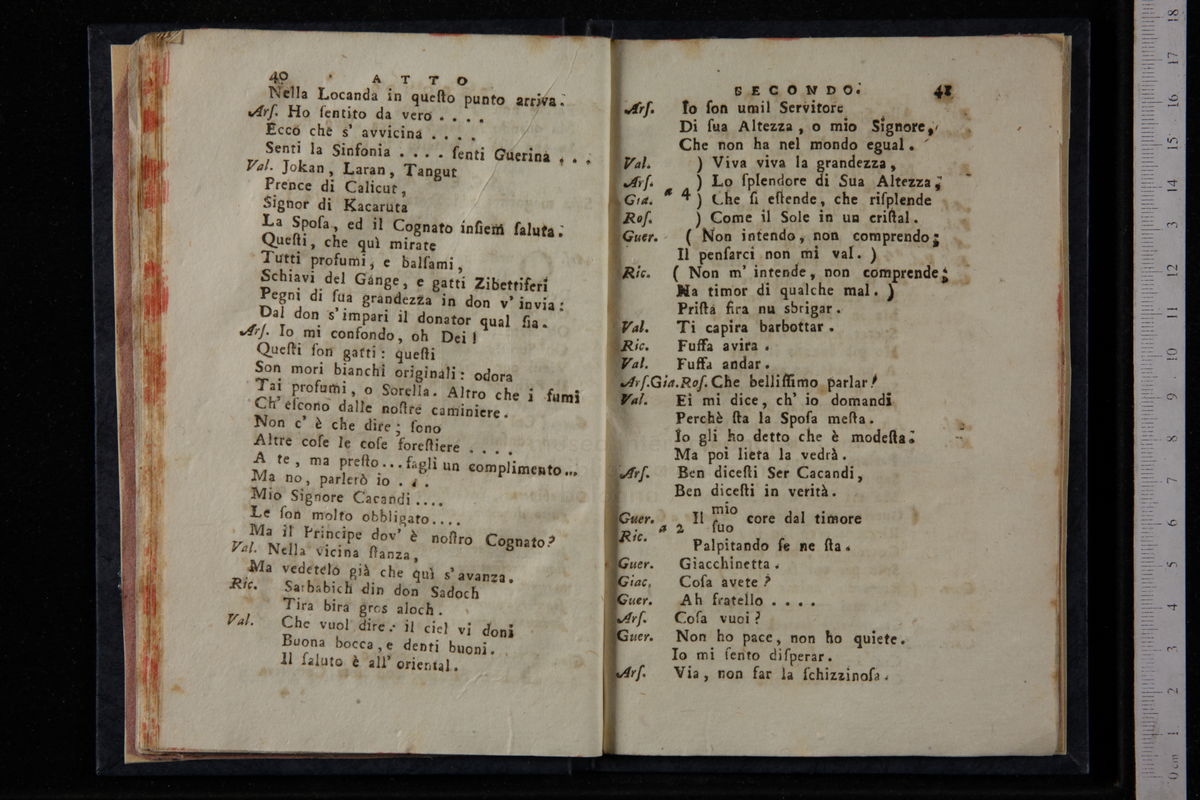 40 ATTO
Nella Locanda in queſto punto arriva.
Arſ. Ho ſentito da vero ....
Ecco che s' avvicina ....
Senti la Sinfonia .... ſenti Guerina ...
Val. Jokan, Laran, Tangut
Prence di Calicut,
Signor di Kacaruta
La Spoſa, ed il Cognato inſiem ſaluta.
Queſti, che quì mirate
Tutti profumi, e balſami,
Schiavi del Gange, e gatti Zibettiferi
Pegni di ſua grandezza in don v' invia:
Dal don s' impari il donator qual ſia.
Arſ. Io mi confondo, oh Dei!
Queſti ſon gatti: queſti
Son mori bianchi originali: odora
Tai profumi, o Sorella. Altro che i fumi
Ch' eſcono dalle noſtre caminiere.
Non c' è che dire; ſono
Altre coſe le coſe foreſtiere ....
A te, ma preſto... fagli un complimento...
Ma no, parlerò io ...
Mio Signore Cacandi ....
Le ſon molto obbligato....
Ma il Principe dov' è noſtro Cognato?
Val. Nella vicina ſtanza,
Ma vedetelo già che quì s' avanza.
Ric. Sarbabich din don Sadoch
Tira bira gros aloch.
Val. Che vuol dire: il ciel vi doni
Buona bocca, e denti buoni.
Il ſaluto è all' oriental.
SECONDO. 41
Arſ. Io ſon umil Servitore
Di ſua Altezza, o mio Signore,
Che non ha nel mondo egual.
Val. ) Viva viva la grandezza,
Arſ. ) Lo ſplendore di Sua Altezza;
Gia. a 4 ) Che ſi eſtende, che riſplende
Roſ. ) Come il Sole in un criſtal.
Guer. ( Non intendo, non comprendo;
Il penſarci non mi val. )
Ric. ( Non m' intende, non comprende;
Ha timor di qualche mal. )
Priſta fira nu sbrigar.
Val. Ti capira barbottar.
Ric. Fuſſa avira.
Val. Fuſſa andar.
Arſ. Gia. Roſ. Che belliſſimo parlar!
Val. Ei mi dice, ch' io domandi
Perchè ſta la Spoſa meſta.
Io gli ho detto che è modeſta.
Ma poi lieta la vedrà.
Arſ. Ben diceſti Ser Cacandi,
Ben diceſti in verità.
mio
Guer. Il core dal timore
Ric. a 2 ſuo
Palpitando ſe ne ſta.
Guer. Giacchinetta.
Giac. Coſa avete?
Guer. Ah fratello ....
Arſ. Coſa vuoi?
Guer. Non ho pace, non ho quiete.
Io mi ſento diſperar.
Arſ. Via, non far la ſchizzinoſa.
18
17
16
15
14
3
12
11
10
9
8
7
6
5
4
3
2
1
0 cm